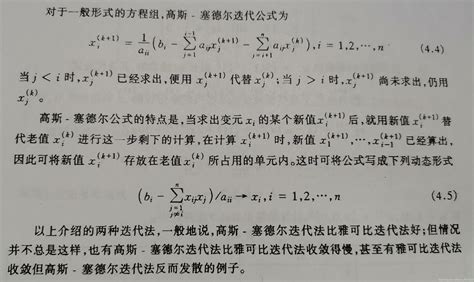 对于一般形式的方程组,高斯-塞德尔迭代公式为
x_i^(k+1) = 1/a_ii (b_i - ∑_{j=1}^{i-1} a_ij x_j^(k+1) - ∑_{j=i+1}^{n} a_ij x_j^(k)), i = 1,2,…,n (4.4)
当 j < i 时, x_j^(k+1) 已经求出,便用 x_j^(k+1) 代替 x_j^(k);当 j > i 时, x_j^(k+1) 尚未求出,仍用
x_j^(k)。
高斯-塞德尔公式的特点是,当求出变元 x_i 的某个新值 x_i^(k+1) 后,就用新值 x_i^(k+1) 替
代老值 x_i^(k) 进行这一步剩下的计算,在计算 x_i^(k+1) 时,新值 x_1^(k+1),…,x_{i-1}^(k+1) 已经算出,
因此可将新值 x_i^(k+1) 存放在老值 x_i^(k) 所占用的单元内。这时可将公式写成下列动态形式
(b_i - ∑_{j=1, j≠i}^{n} x_ij x_j)/a_ii → x_i, i = 1,2,…,n (4.5)
以上介绍的两种迭代法,一般地说,高斯-塞德尔迭代法比雅可比迭代法好;但情况
并不总是这样,也有高斯-塞德尔迭代法比雅可比迭代法收敛得慢,甚至有雅可比迭代法
收敛但高斯-塞德尔迭代法反而发散的例子。